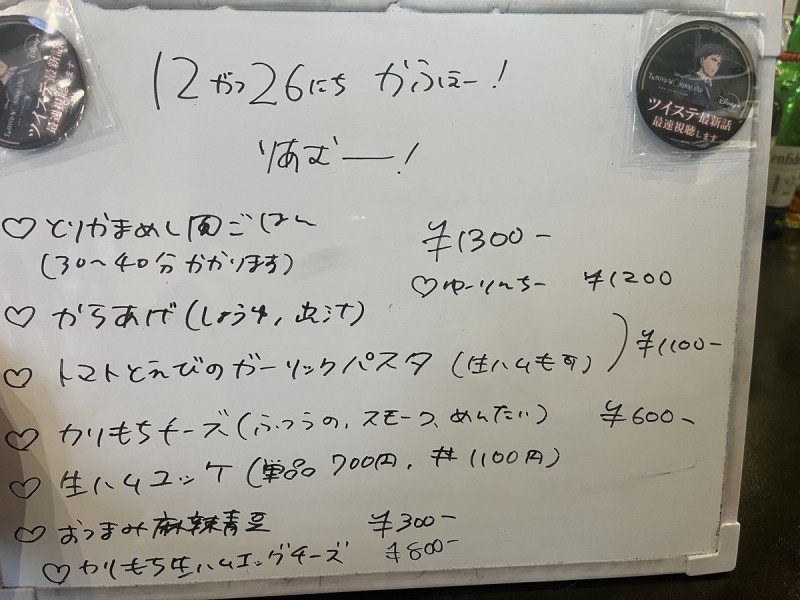 12がつ26にち かふぇー!
りあむー!
♡とりかまめし風ごはん ¥1300-
(30~40分かかります)
♡ゆーりんちー ¥1200
♡からあげ(しょうゆ,出汁)
♡トマトとえびのガーリックパスタ(生ハムも可) ¥1100-
♡カリもちチーズ(ふつうの,スモーク,めんたい) ¥600-
♡生ハムユッケ(単品700円,丼1100円)
♡おつまみ麻辣青豆 ¥300-
♡カリもち生ハムエッグチーズ ¥800-
TWISTED WONDERLAND
Disney+
ツイステ最新話
最速視聴します
ツイステ最新話
最速視聴します